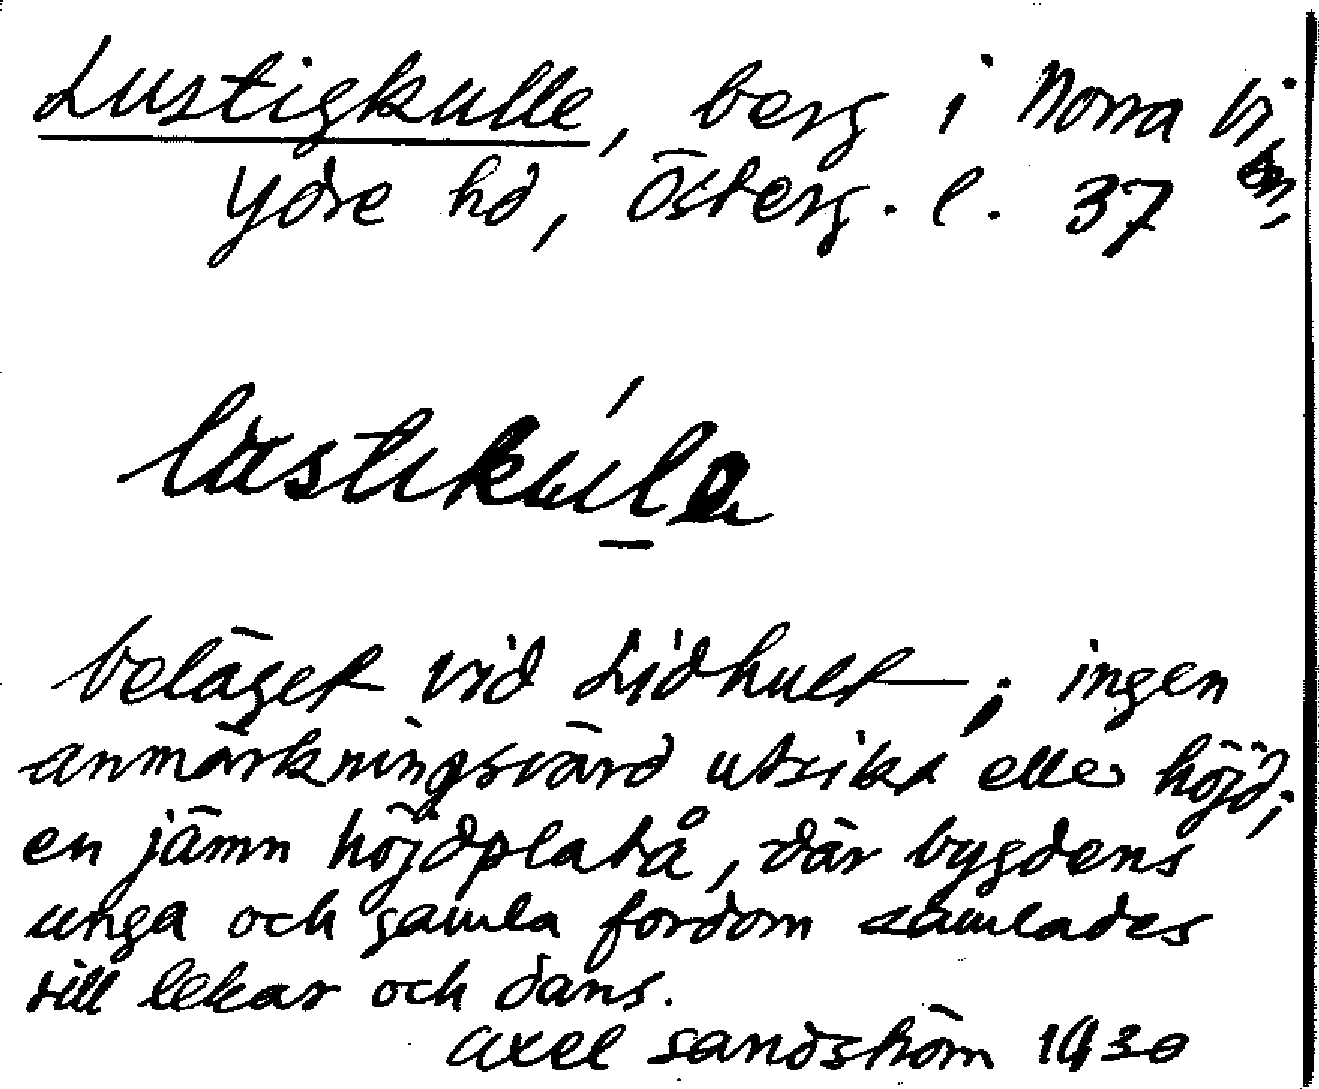 Lustigkulle, berg i Norra Vi
Ydre hd, Österg. l. 37
beläget vid Lidhult; ingen
anmärkningsvärd utsikt eller höjd;
en jämn höjdplatå, där bygdens
unga och gamla fordom samlades
till lekar och dans.
Axel Sandström 1930